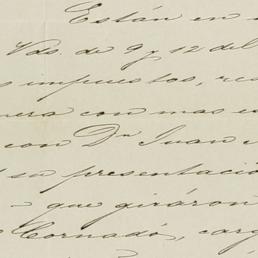 Están en
Vds. de 9 y 12 del
impuestos, res
nera con mas es
con Dn Juan
su presentació
- que girárón
Cornadó, carg